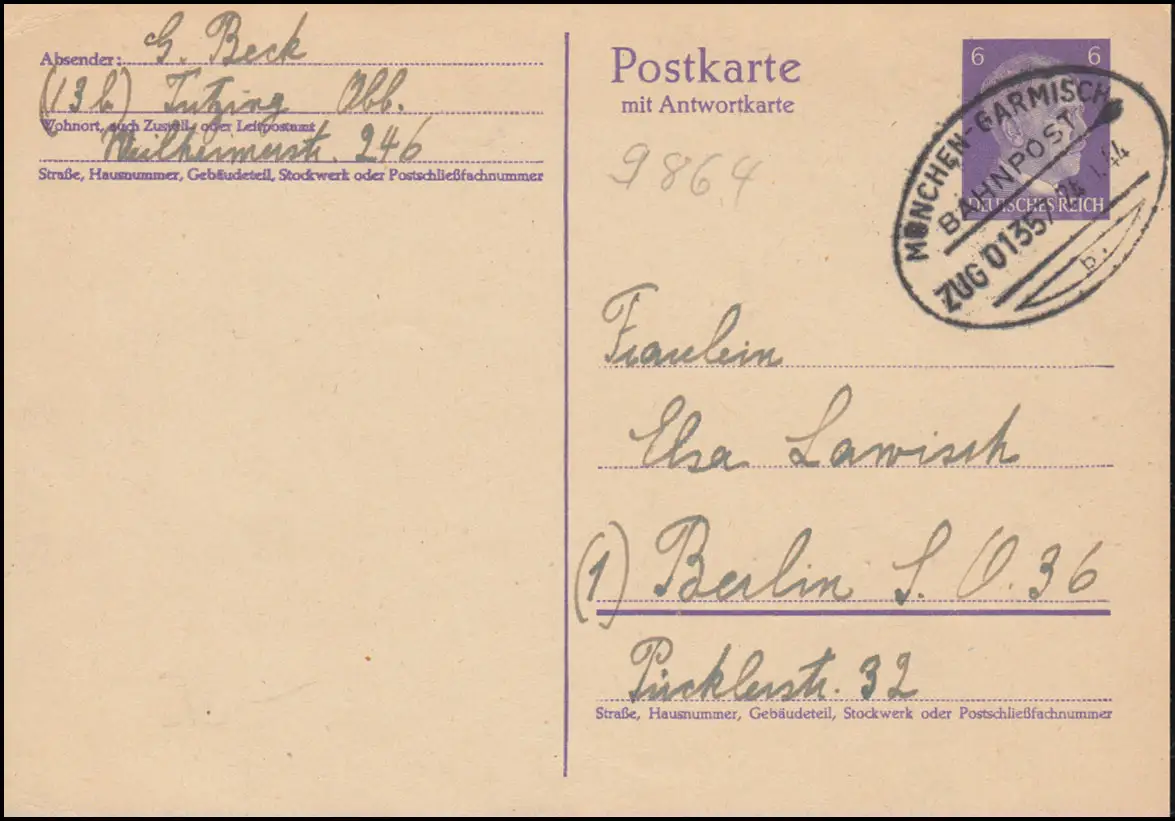 Absender: G. Beck
(13b) Tutzing Obb.
Wohnort, auch Zustell- oder Leitpostamt
Weilheimerstr. 246
Straße, Hausnummer, Gebäudeteil, Stockwerk oder Postschließfachnummer
Postkarte
mit Antwortkarte
9864
6 6
DEUTSCHES REICH
MÜNCHEN-GARMISCH
BAHNPOST
ZUG 01357 24 1.44
b.
Fraulein
Elsa Lawisch
(1) Berlin S. O. 36
Pücklerstr. 32
Straße, Hausnummer, Gebäudeteil, Stockwerk oder Postschließfachnummer